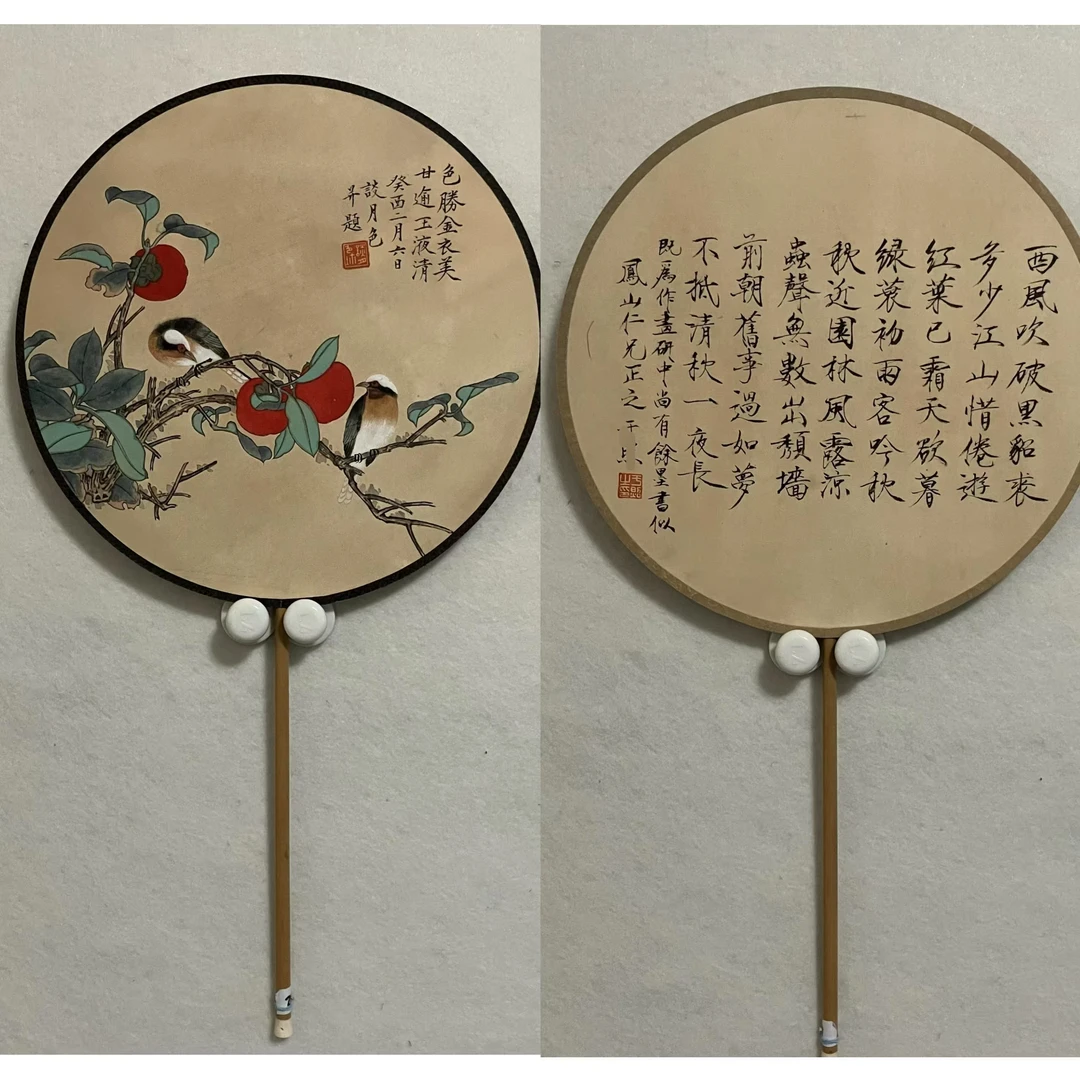 色勝金衣美
甘逾玉液清
癸酉二月六日
談月色
并題
西風吹破黑貂裘
多少江山惜倦遊
紅葉已霜天欲暮
綠蓑初雨客吟秋
秋近園林風露涼
蟲聲無數出頹墻
前朝舊事過如夢
不抵清秋一夜長
既爲作畫研中尚有餘墨書似
鳳山仁兄正之 于照